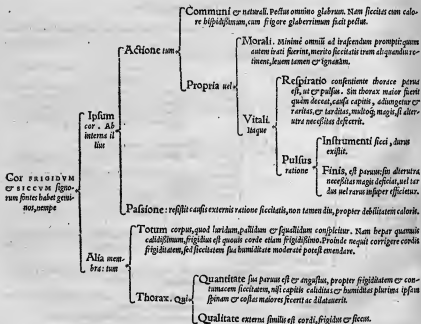 Communi & naturali. Pectus omnino glabrum. Nam siccitas cum calo-
re hispidißimum, cum frigore glaberrimum facit pectus.
Actione tum
Morali. Minimè omniũ ad irascendum prompti: quum
autem irati fuerint, merito siccitatis iram aliquandiu re-
tinent, leuem tamen & ignauam.
Propria uel
Respiratio consentiente thorace parua
est, ut & pulsus. Sin thorax maior fuerit
quàm deceat, causa capitis, adiungetur &
raritas, et tarditas, multoq; magis, si alter-
utra necessitas defecerit.
Vitali.
itaque
Ipsum
cor. Ab
interna il
lius
Pulsus
ratione
Instrumenti sicci, durus
existit.
Finis, est paruus: sin alterutra
necessitas magis deficiat, uel tar
dus uel rarus insuper efficietur.
Cor FRIGIDVM
& SICCVM signo-
rum fontes habet gemi
nos, nempe
Passione: resistit causis externis ratione siccitatis, non tamen diu, propter debilitatem caloris.
Totum corpus, quod luridum, pallidum & squallidum conspicitur. Nam hepar quamuis
calidißimum, frigidius est quouis corde etiam frigidißimo. Proinde nequit corrigere cordis
frigiditatem, sed siccitatem sua humiditate moderatè potest emendare.
Alia mem
bra: tum
Thorax. Qui
Quantitate sua paruus est & angustus, propter frigiditatem & con-
tumacem siccitatem, nisi capitis caliditas & humiditas plurima ipsam
spinam & costas maiores fecerit ac dilatauerit.
Qualitate externa similis est cordi, frigidus & siccus.